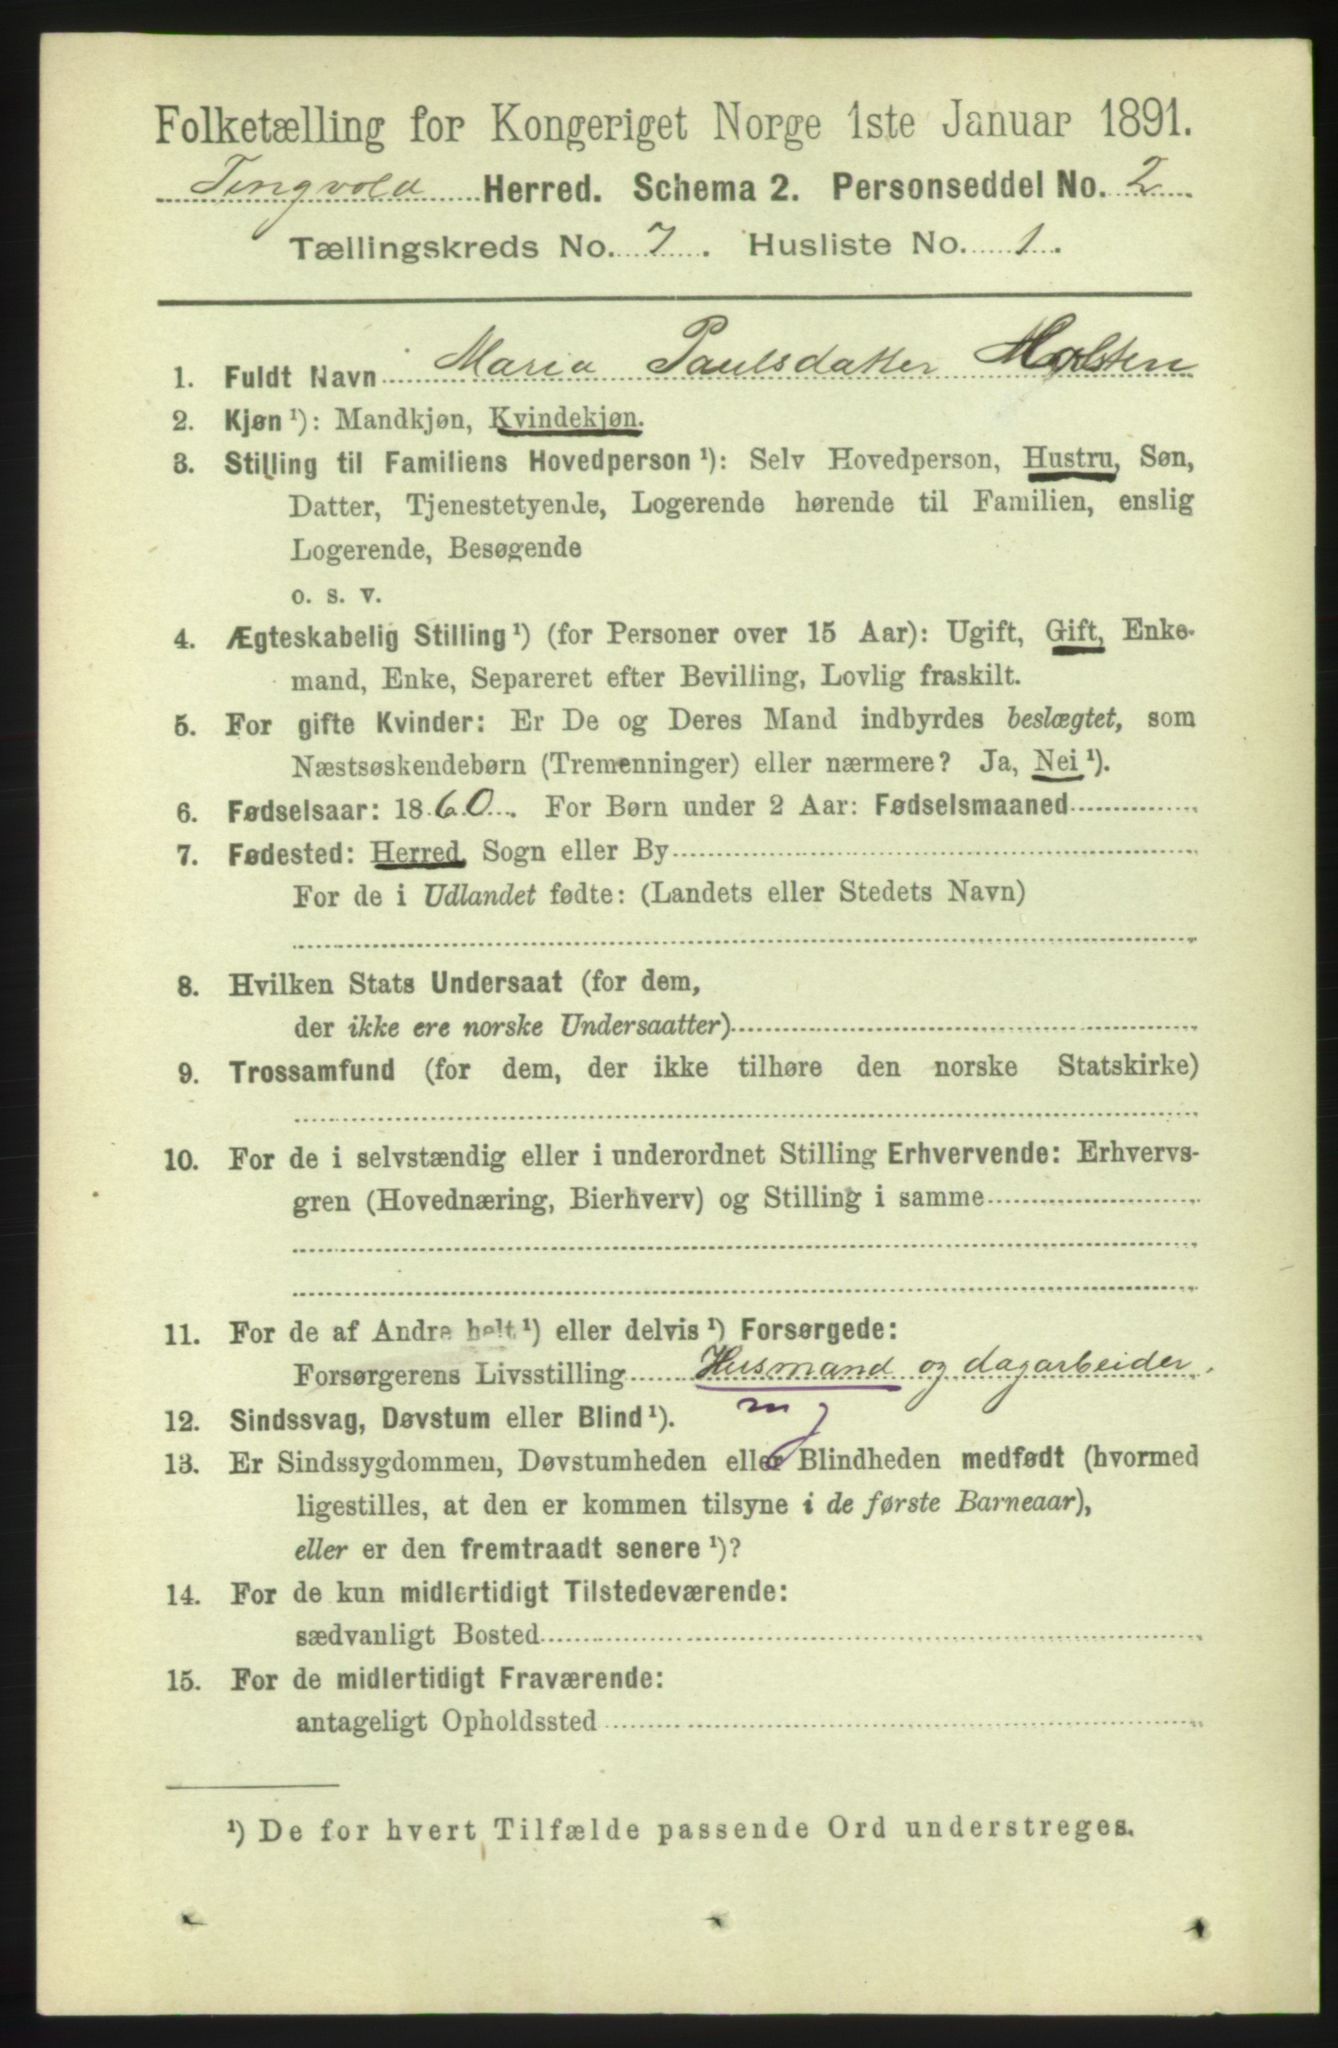 Folketælling for Kongeriget Norge 1ste Januar 1891.
Tingvold Herred. Schema 2. Personseddel No. 2
Tællingskreds No. 7. Husliste No. 1.
1. Fuldt Navn Maria Paulsdatter Holsten
2. Kjøn ¹): Mandkjøn, Kvindekjøn.
3. Stilling til Familiens Hovedperson ¹): Selv Hovedperson, Hustru, Søn,
Datter, Tjenestetyende, Logerende hørende til Familien, enslig
Logerende, Besøgende
o. s. v.
4. Ægteskabelig Stilling ¹) (for Personer over 15 Aar): Ugift, Gift, Enke-
mand, Enke, Separeret efter Bevilling, Lovlig fraskilt.
5. For gifte Kvinder: Er De og Deres Mand indbyrdes beslægtet, som
Næstsøskendebørn (Tremenninger) eller nærmere? Ja, Nei ¹).
6. Fødselsaar: 1860. For Børn under 2 Aar: Fødselsmaaned
7. Fødested: Herred, Sogn eller By
For de i Udlandet fødte: (Landets eller Stedets Navn)
8. Hvilken Stats Undersaat (for dem,
der ikke ere norske Undersaatter)
9. Trossamfund (for dem, der ikke tilhøre den norske Statskirke)
10. For de i selvstændig eller i underordnet Stilling Erhvervende: Erhvervs-
gren (Hovednæring, Bierhverv) og Stilling i samme
11. For de af Andre helt ¹) eller delvis ¹) Forsørgede:
Forsørgerens Livsstilling Husmand og dagarbeider.
m j
12. Sindssvag, Døvstum eller Blind ¹).
13. Er Sindssygdommen, Døvstumheden eller Blindheden medfødt (hvormed
ligestilles, at den er kommen tilsyne i de første Barneaar),
eller er den fremtraadt senere ¹)?
14. For de kun midlertidigt Tilstedeværende:
sædvanligt Bosted
15. For de midlertidigt Fraværende:
antageligt Opholdssted
¹) De for hvert Tilfælde passende Ord understreges.